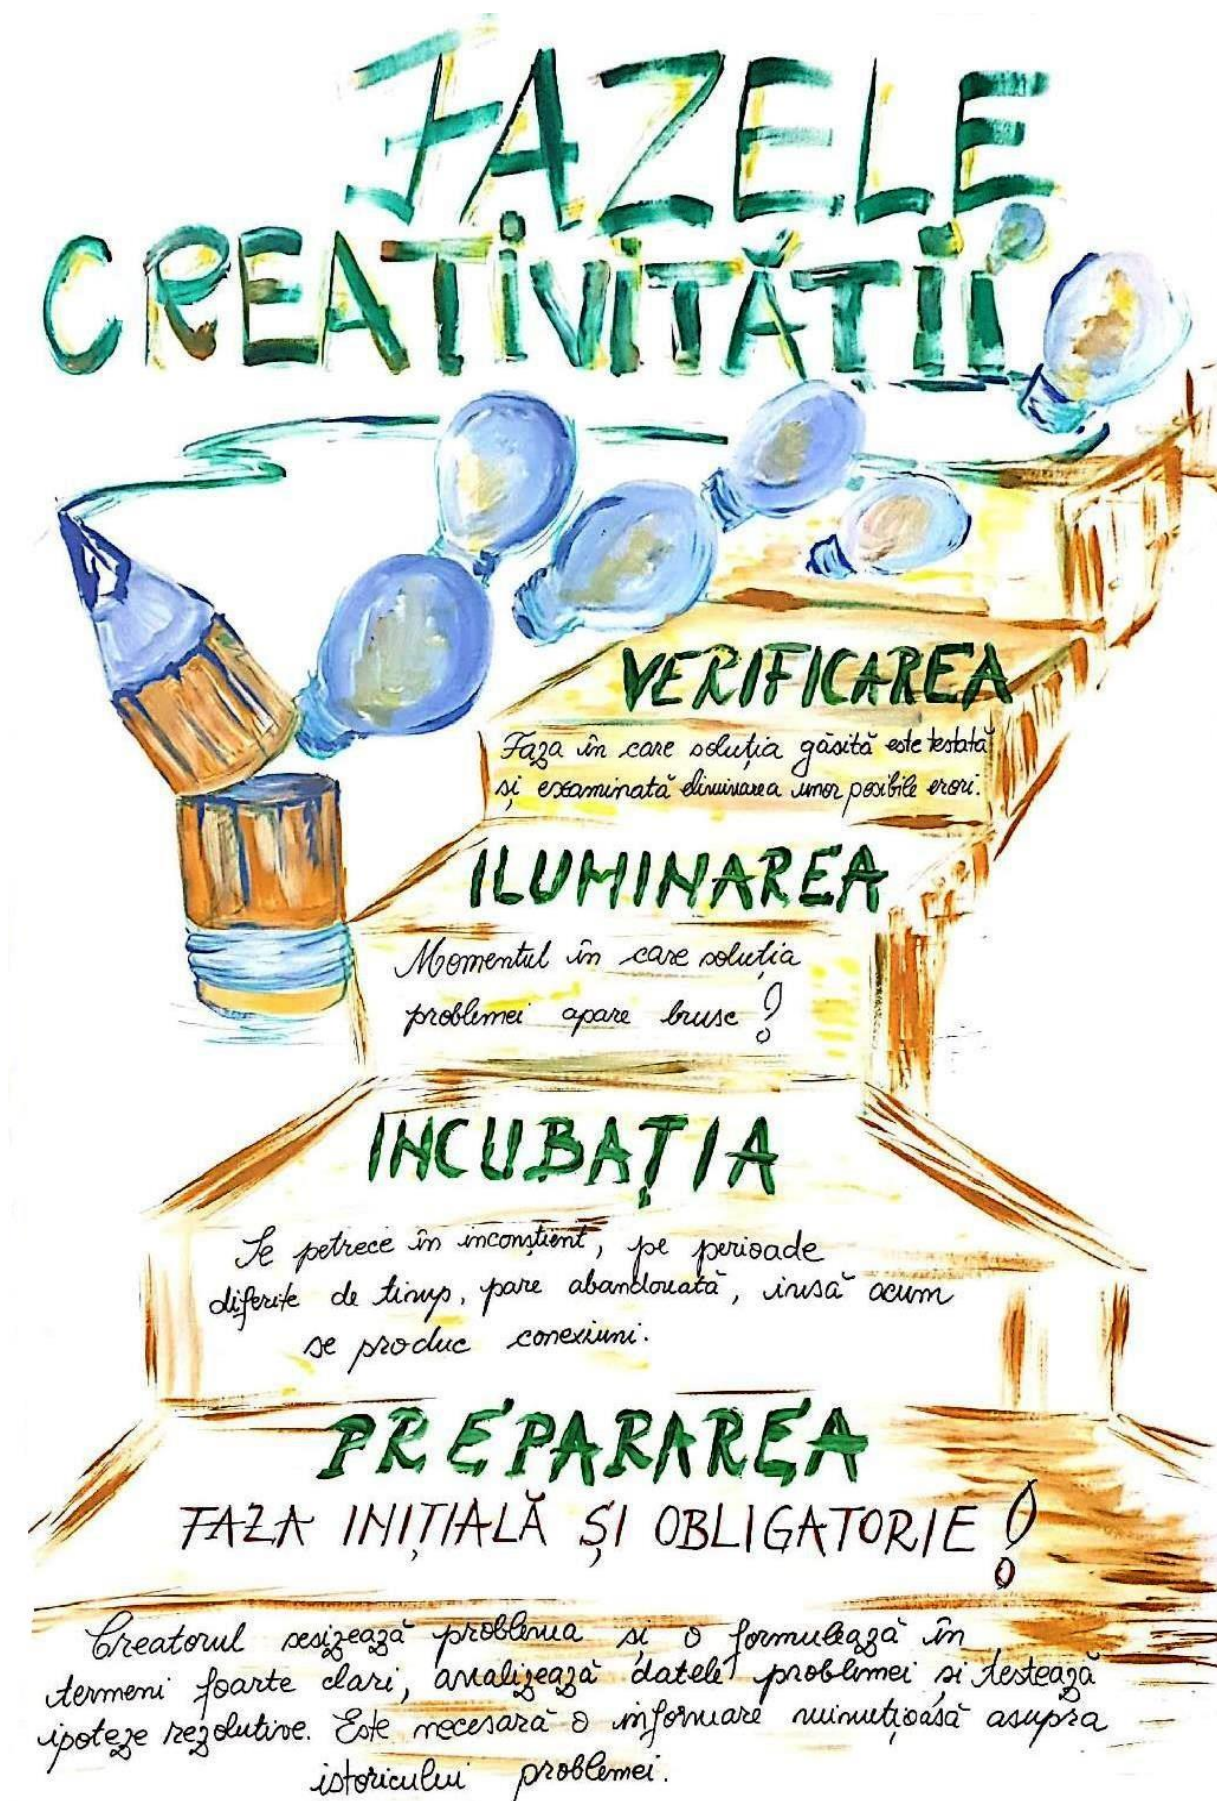 FAZELE
CREATIVITĂȚII
VERIFICAREA
Faza în care soluția găsită este testată
și examinată eliminarea unor posibile erori.
ILUMINAREA
Momentul în care soluția
problemei apare brusc!
INCUBAȚIA
Se petrece în inconștient, pe perioade
diferite de timp, pare abandonată, însă acum
se produc conexiuni.
PREPARAREA
FAZA INIȚIALĂ ȘI OBLIGATORIE!
Creatorul sesizează problema și o formulează în
termeni foarte clari, analizează datele problemei și testează
ipoteze rezolutive. Este necesară o informare minuțioasă asupra
istoricului problemei.